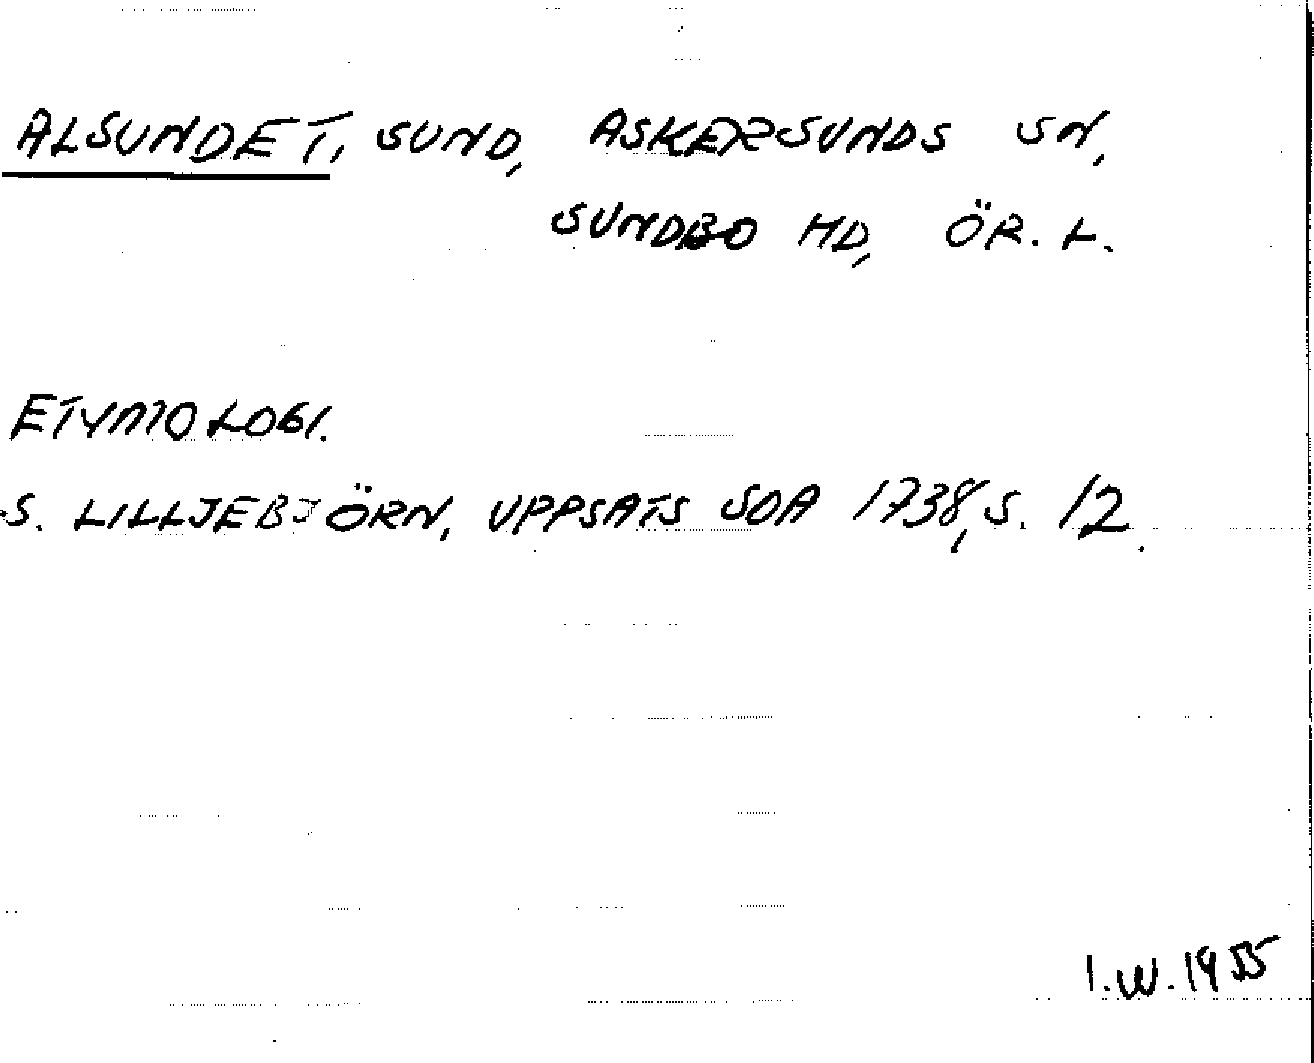 ALSUNDET, SUND, ASKERSUNDS SN,
SUNDBO HD, ÖR. L.
ETYMOLOGI.
S. LILLJEBJÖRN, UPPSATS SOA 1738, S. 12.
I.W. 1955